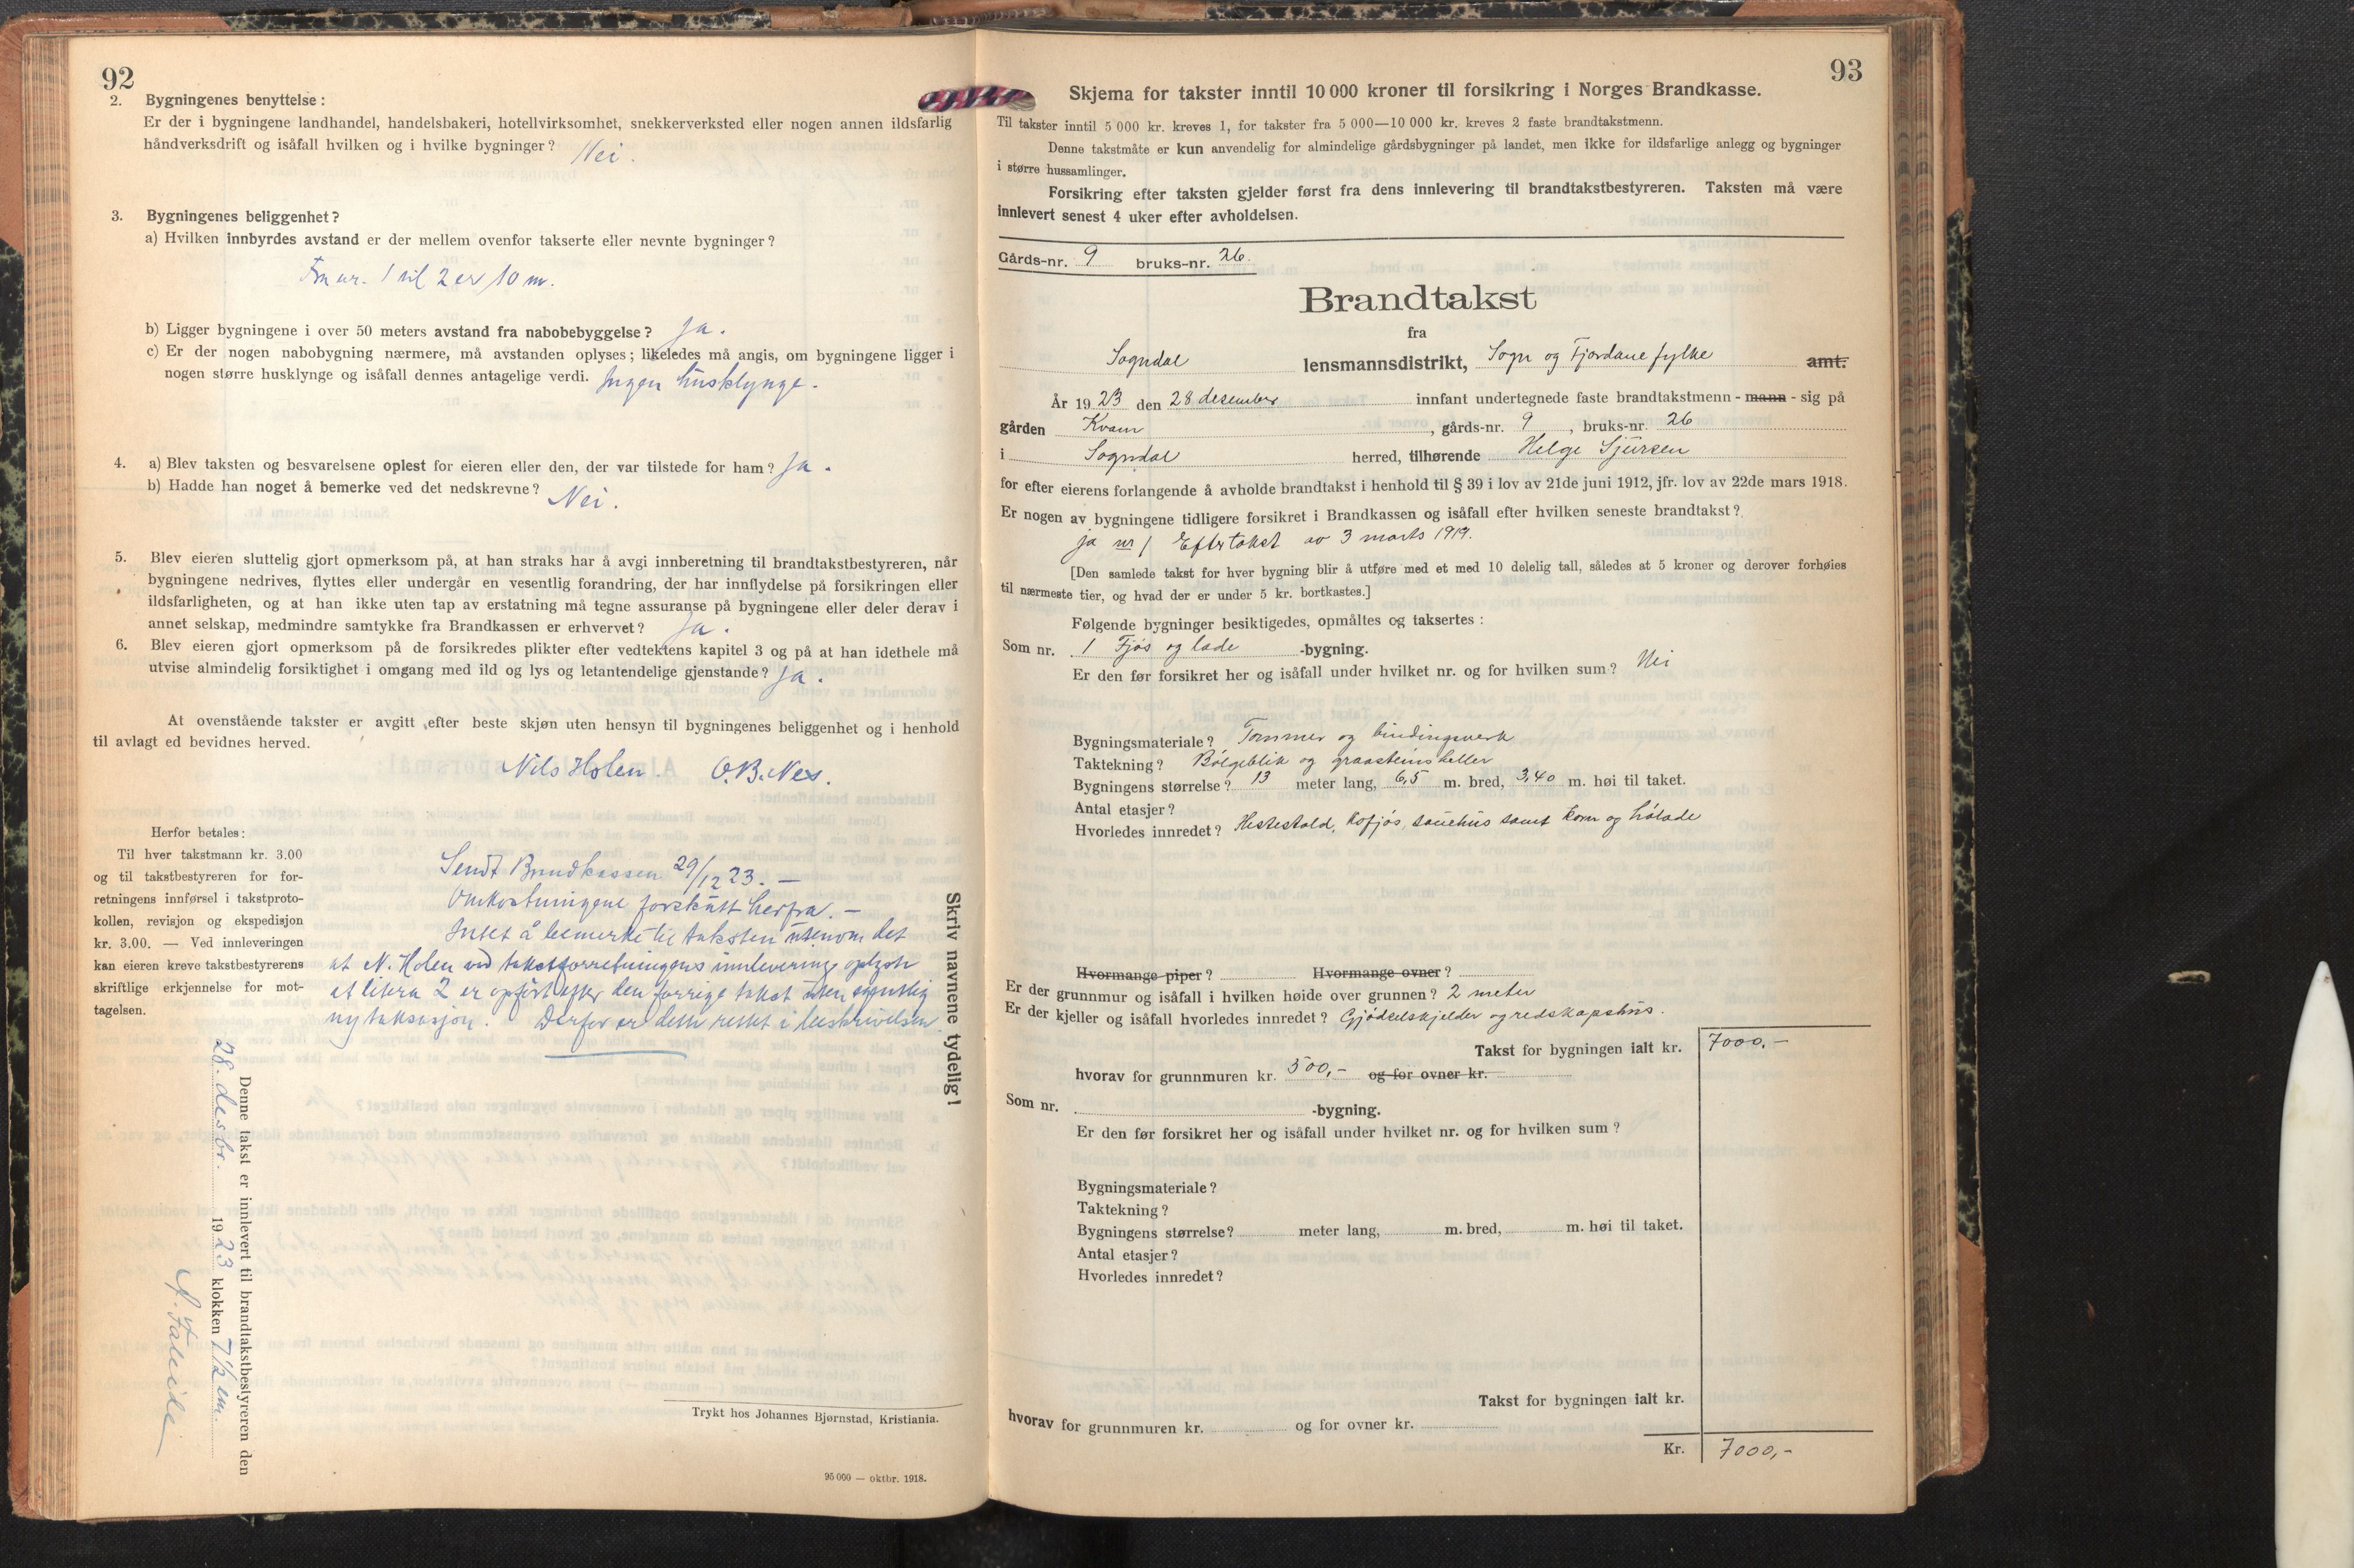 92
2. Bygningenes benyttelse :
Er der i bygningene landhandel, handelsbakeri, hotellvirksomhet, snekkerverksted eller nogen annen ildsfarlig
håndverksdrift og isåfall hvilken og i hvilke bygninger? Nei.
3. Bygningenes beliggenhet?
a) Hvilken innbyrdes avstand er der mellem ovenfor takserte eller nevnte bygninger?
Fra nr. 1 til 2 er 10 m.
b) Ligger bygningene i over 50 meters avstand fra nabobebyggelse? Ja.
c) Er der nogen nabobygning nærmere, må avstanden oplyses; likeledes må angis, om bygningene ligger i
nogen større husklynge og isåfall dennes antagelige verdi. Ingen husklynge.
4. a) Blev taksten og besvarelsene oplest for eieren eller den, der var tilstede for ham? Ja.
b) Hadde han noget å bemerke ved det nedskrevne? Nei.
5. Blev eieren sluttelig gjort opmerksom på, at han straks har å avgi innberetning til brandtakstbestyreren, når
bygningene nedrives, flyttes eller undergår en vesentlig forandring, der har innflydelse på forsikringen eller
ildsfarligheten, og at han ikke uten tap av erstatning må tegne assuranse på bygningene eller deler derav i
annet selskap, medmindre samtykke fra Brandkassen er erhvervet? Ja.
6. Blev eieren gjort opmerksom på de forsikredes plikter efter vedtektens kapitel 3 og på at han idethele må
utvise almindelig forsiktighet i omgang med ild og lys og letantendelige gjenstande? Ja.
At ovenstående takster er avgitt efter beste skjøn uten hensyn til bygningenes beliggenhet og i henhold
til avlagt ed bevidnes herved.
Nils Holen. O.B. Nes.
Herfor betales:
Til hver takstmann kr. 3.00
og til takstbestyreren for for-
retningens innførsel i takstproto-
kollen, revisjon og ekspedisjon
kr. 3.00. — Ved innleveringen
kan eieren kreve takstbestyrerens
skriftlige erkjennelse for mot-
tagelsen.
Sendt Brandkassen 29/12 23. —
Omkostningene forskutt herfra. —
Intet å bemerke til taksten utenom det
at N. Holen ved takstforretningens innlevering oplyste
at litera 2 er opført efter den forrige takst uten egentlig
ny taksasjon. Derfor er dette rettet i beskrivelsen.
Skriv navnene tydelig!
Denne takst er innlevert til brandtakstbestyreren den
28. desbr. 1923 klokken 7 1/2 em.
Trykt hos Johannes Bjørnstad, Kristiania.
95 000 — oktbr. 1918.
93
Skjema for takster inntil 10 000 kroner til forsikring i Norges Brandkasse.
Til takster inntil 5 000 kr. kreves 1, for takster fra 5 000—10 000 kr. kreves 2 faste brandtakstmenn.
Denne takstmåte er kun anvendelig for almindelige gårdsbygninger på landet, men ikke for ildsfarlige anlegg og bygninger
i større hussamlinger.
Forsikring efter taksten gjelder først fra dens innlevering til brandtakstbestyreren. Taksten må være
innlevert senest 4 uker efter avholdelsen.
Gårds-nr. 9 bruks-nr. 26.
Brandtakst
fra
Sogndal lensmannsdistrikt, Sogn og Fjordane fylke amt.
År 1923 den 28 desember innfant undertegnede faste brandtakstmenn - mann - sig på
gården Kvam, gårds-nr. 9, bruks-nr. 26
i Sogndal herred, tilhørende Helge Sjursen
for efter eierens forlangende å avholde brandtakst i henhold til § 39 i lov av 21de juni 1912, jfr. lov av 22de mars 1918.
Er nogen av bygningene tidligere forsikret i Brandkassen og isåfall efter hvilken seneste brandtakst?
ja nr 1 Eftertakst av 3 marts 1919.
[Den samlede takst for hver bygning blir å utføre med et med 10 delelig tall, således at 5 kroner og derover forhøies
til nærmeste tier, og hvad der er under 5 kr. bortkastes.]
Følgende bygninger besiktigedes, opmåltes og taksertes :
Som nr. 1 Fjøs og lade -bygning.
Er den før forsikret her og isåfall under hvilket nr. og for hvilken sum? Nei
Bygningsmateriale? Tømmer og bindingsverk
Taktekning? Bølgeblik og graasteinsheller
Bygningens størrelse? 13 meter lang, 6,5 m. bred, 3,40 m. høi til taket.
Antal etasjer?
Hvorledes innredet? Hestestald, kofjøs, sauehus samt korn og hølade
Hvormange piper? Hvormange ovner?
Er der grunnmur og isåfall i hvilken høide over grunnen? 2 meter
Er der kjeller og isåfall hvorledes innredet? Gjødselskjelder og redskapshus.
Takst for bygningen ialt kr. 7000,-
hvorav for grunnmuren kr. 500,- og for ovner kr.
Som nr. -bygning.
Er den før forsikret her og isåfall under hvilket nr. og for hvilken sum?
Bygningsmateriale?
Taktekning?
Bygningens størrelse? meter lang, m. bred, m. høi til taket.
Antal etasjer?
Hvorledes innredet?
Takst for bygningen ialt kr.
hvorav for grunnmuren kr. og for ovner kr.
Kr. 7000,-